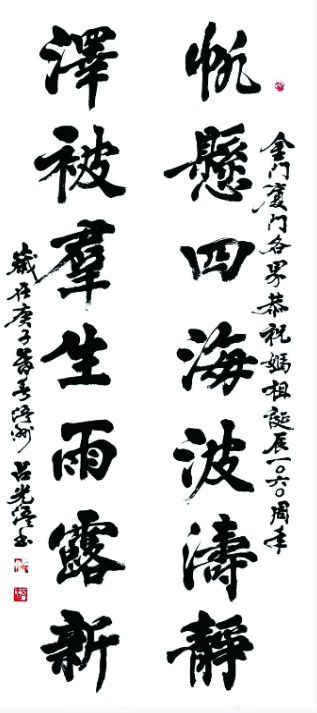 金门廈门各界恭祝媽祖誕辰一〇六〇周年
帆懸四海波濤靜
澤被羣生雨露新
歲在庚子暮春浯洲呂光浯书